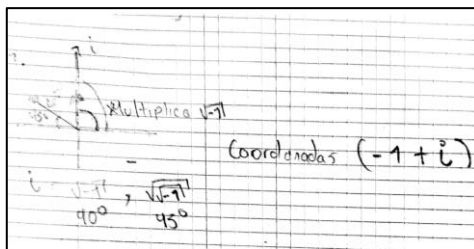 i
Multiplica √-1
Coordenadas (-1 + i)
i - √-1 , √√-1
90° 45°